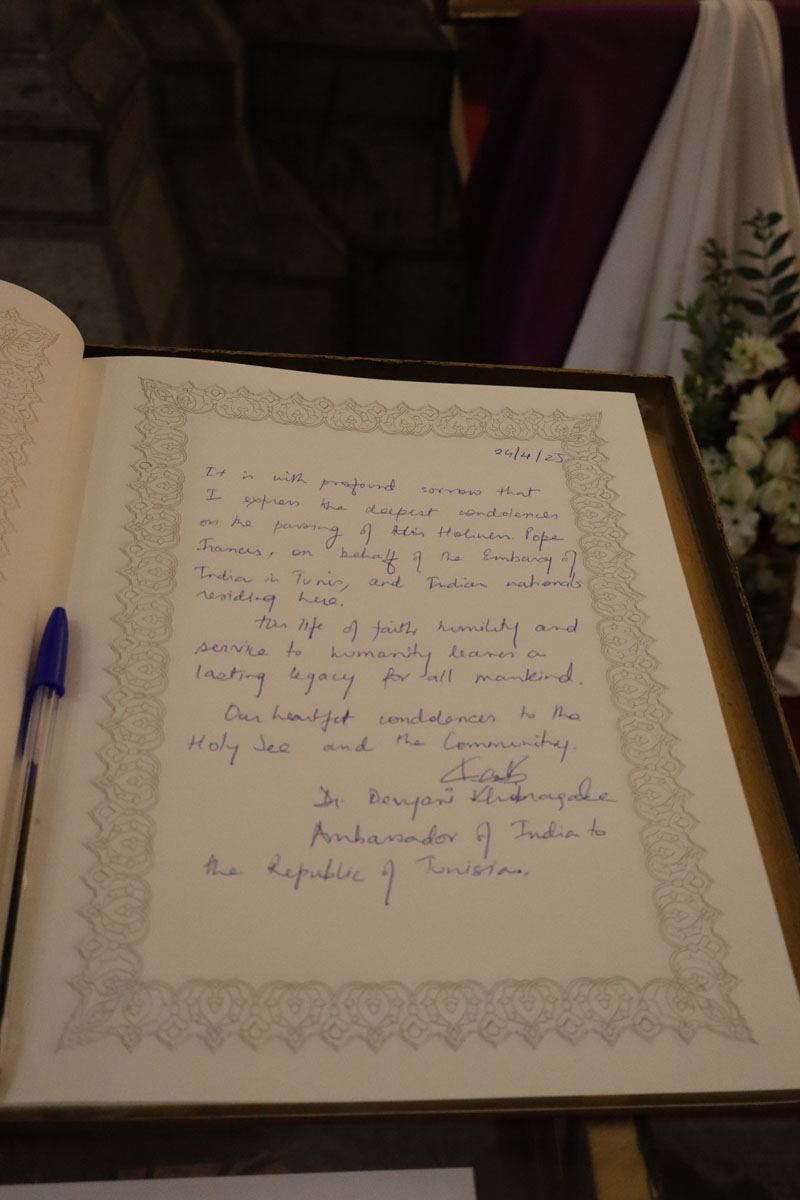 24/4/25
It is with profound sorrow that
I express the deepest condolences
on the passing of His Holiness Pope
Francis, on behalf of the Embassy of
India in Tunis, and Indian nationals
residing here.
His life of faith humility and
service to humanity leaves a
lasting legacy for all mankind.
Our heartfelt condolences to the
Holy See and the Community.
Dr. Devyani Khobragade
Ambassador of India to
the Republic of Tunisia.